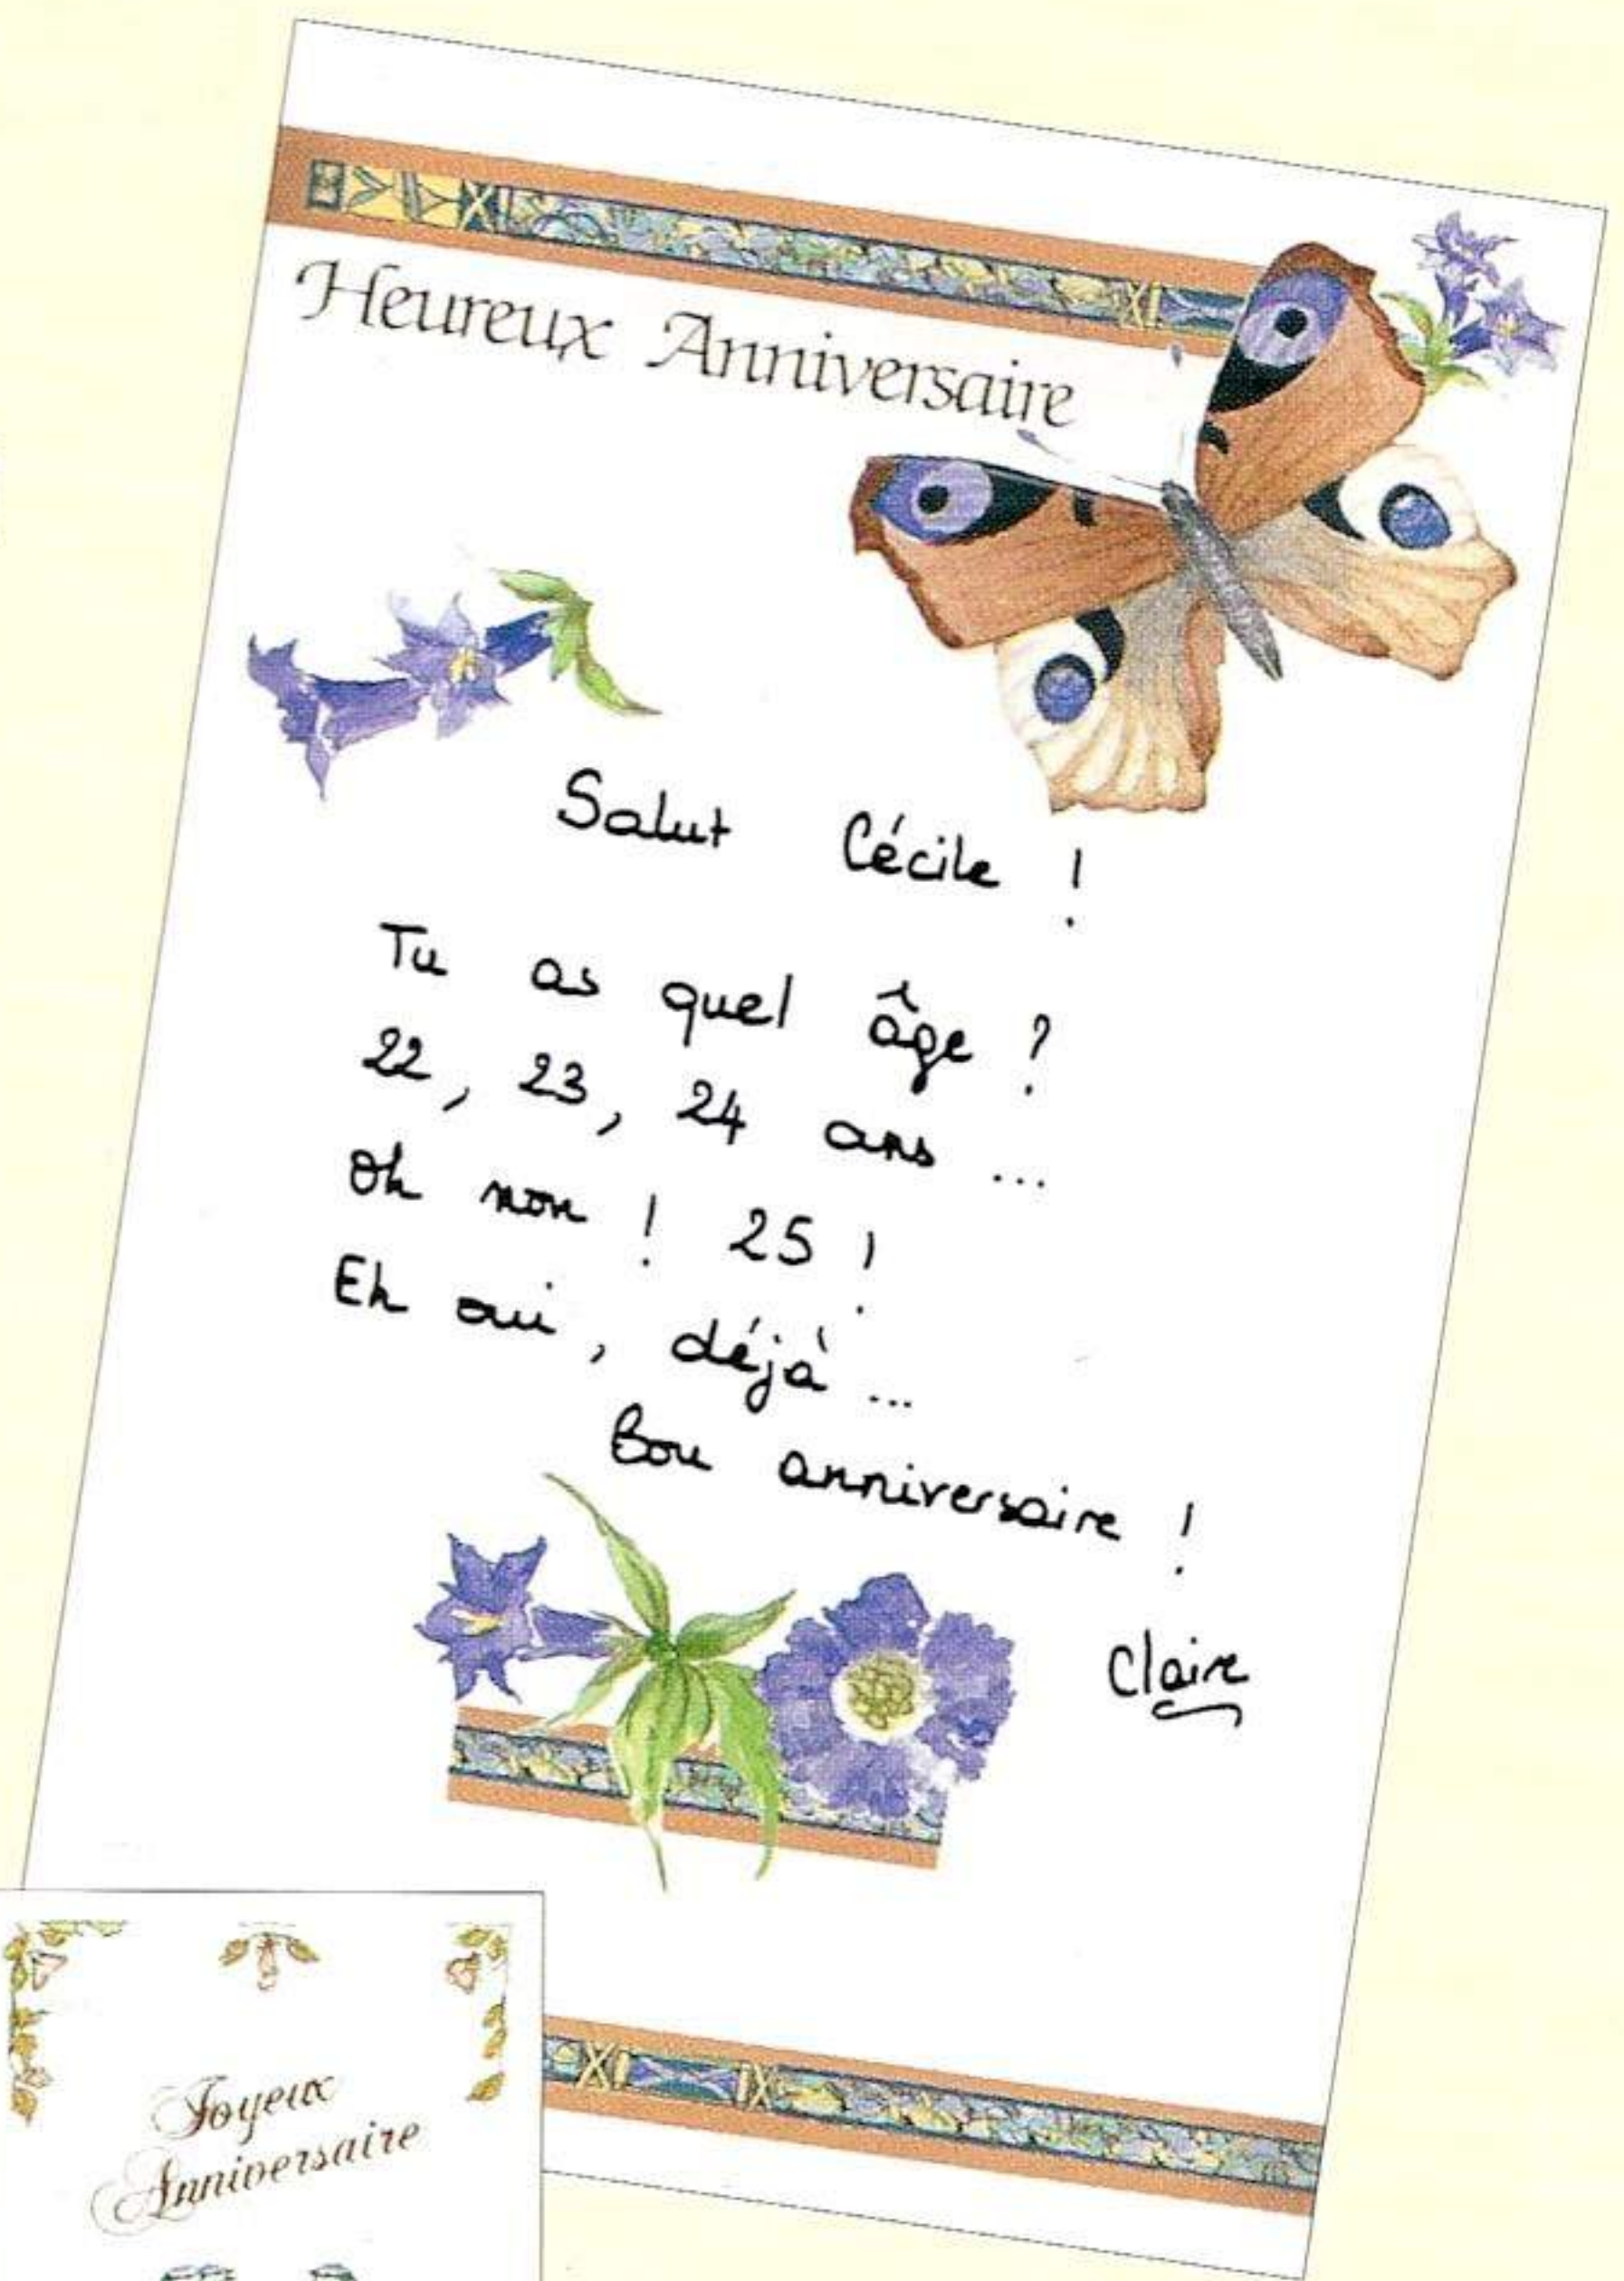 Heureux Anniversaire
Salut Cécile !
Tu as quel âge ?
22, 23, 24 ans ...
Oh non ! 25 !
Eh oui, déjà ...
Bon anniversaire !
Claire
Joyeux
Anniversaire